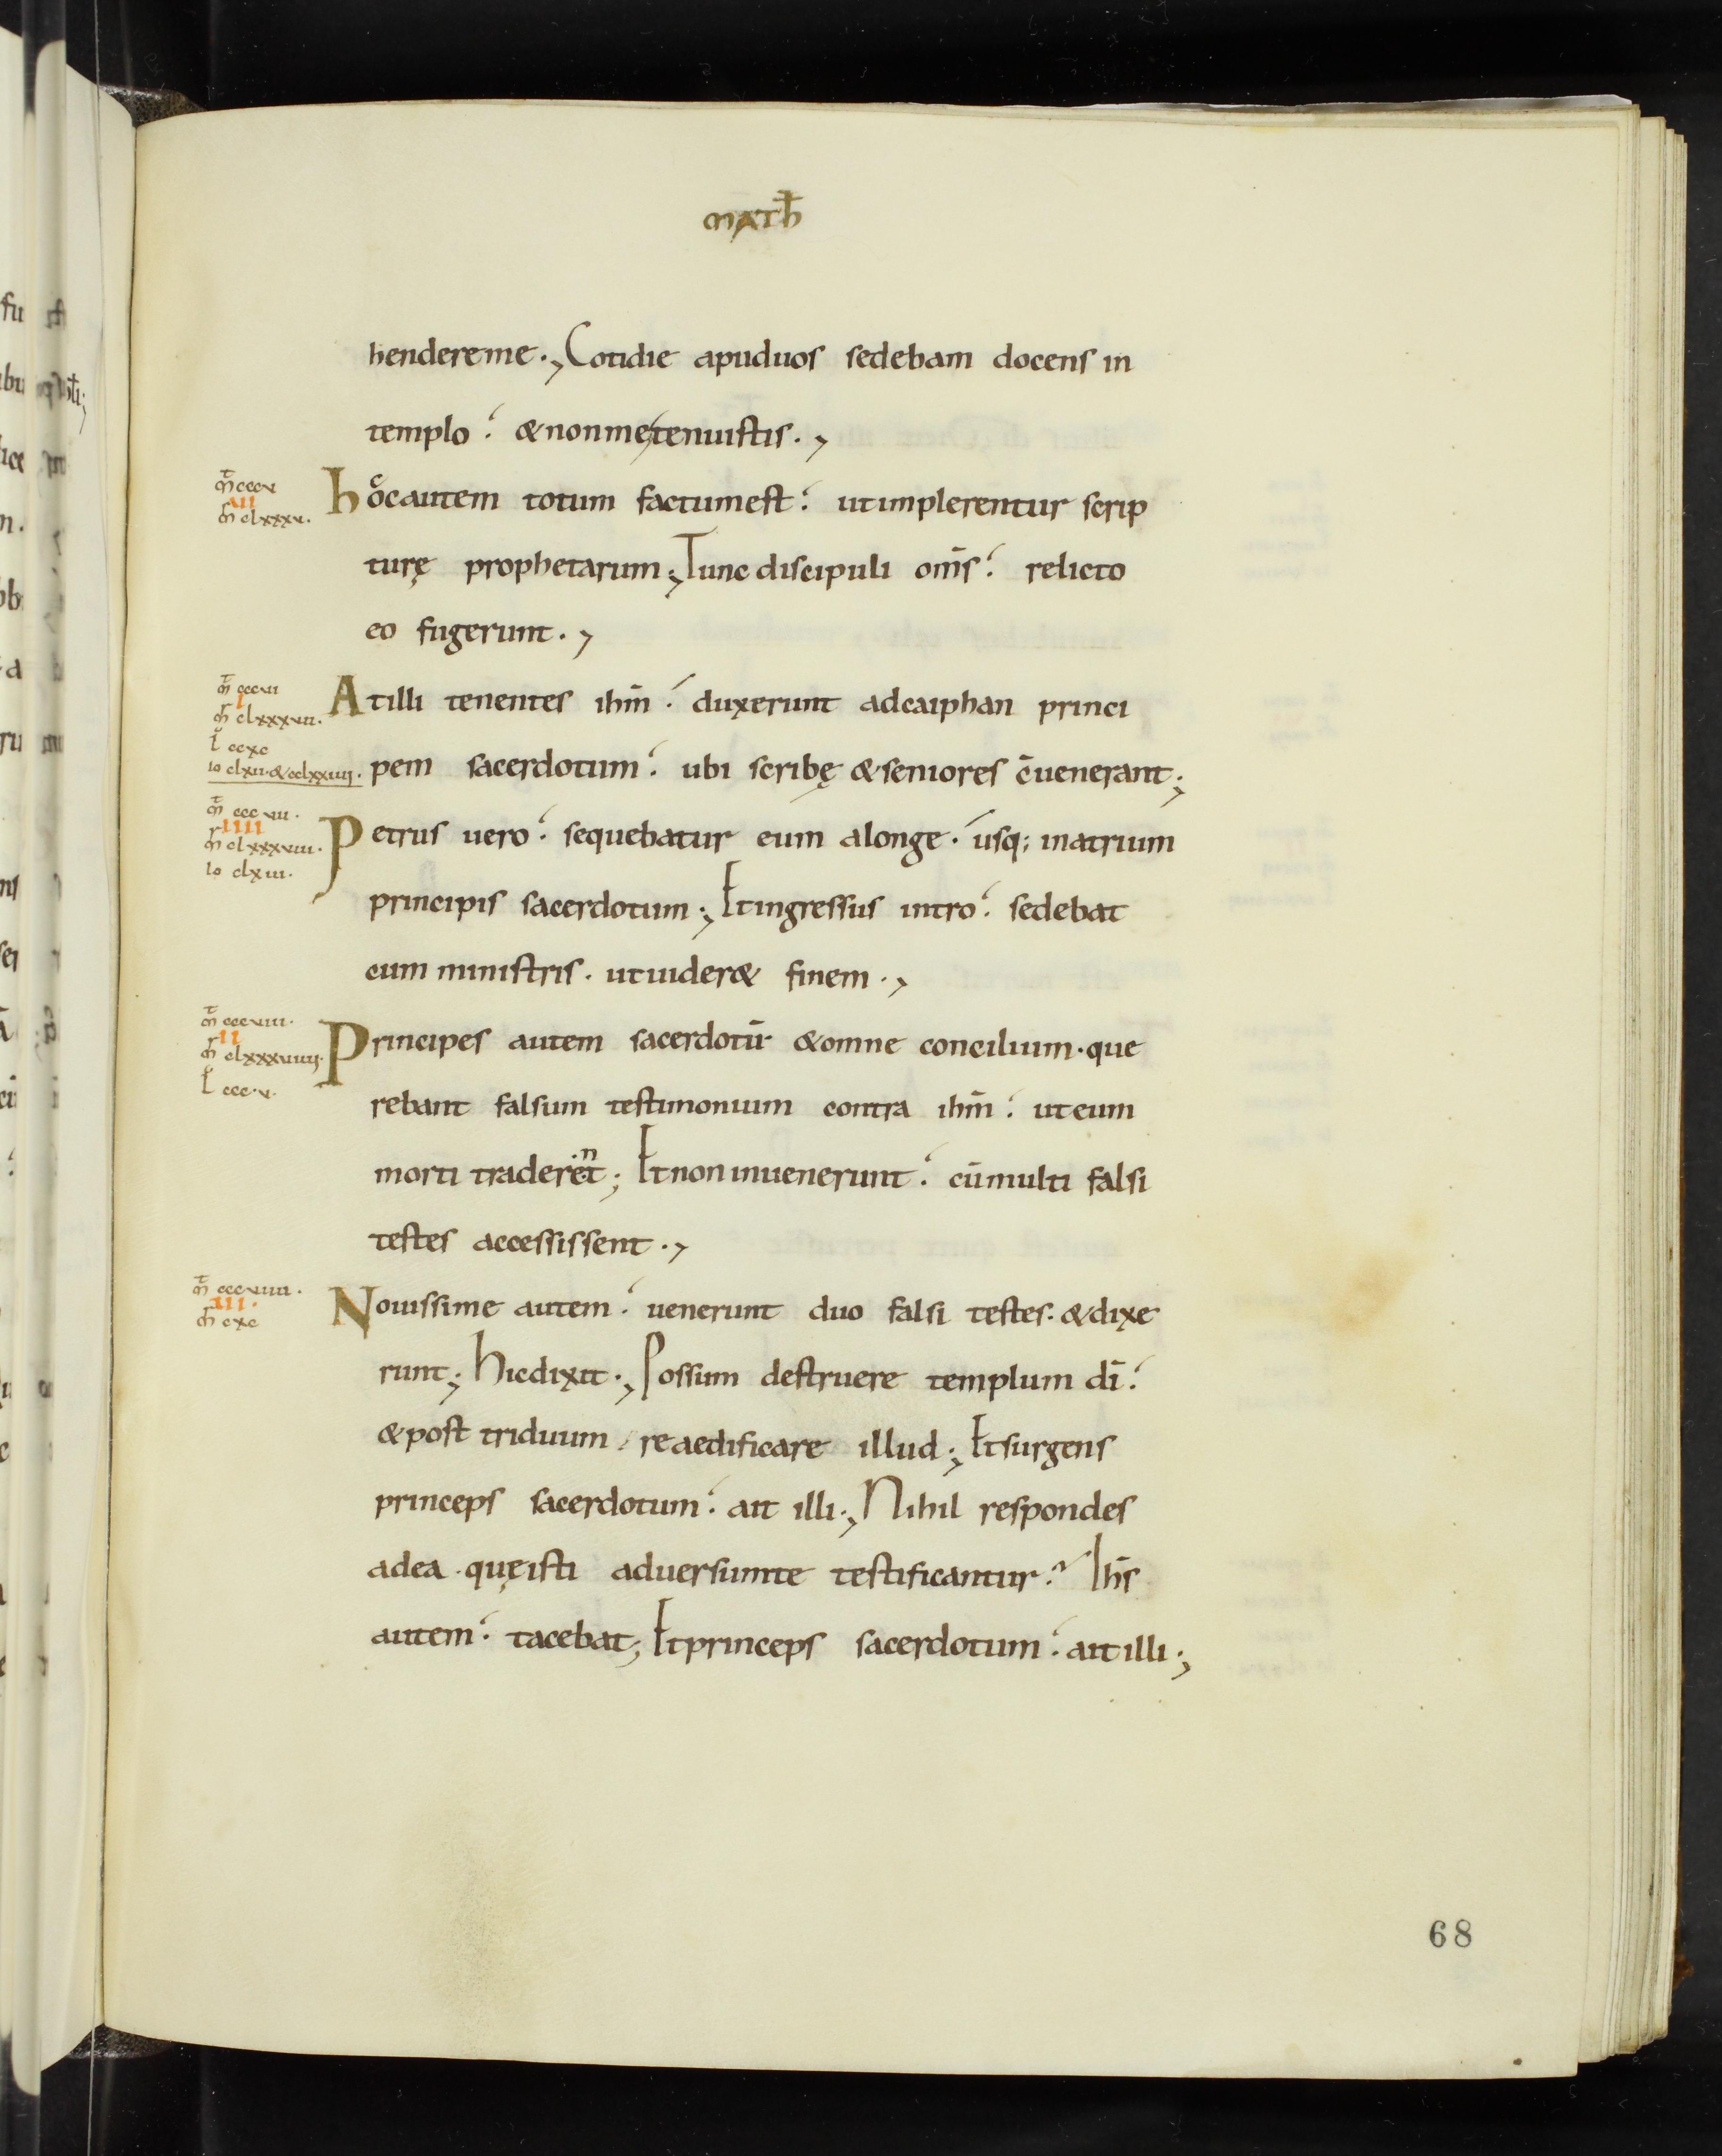 MATH̄
hendereme., Cotidie apuduos sedebam docens in
templo. & nonmetenuistis.,
m̄t cccv
vii
m̄r clxxxv.
hocautem totum factumest. utimplerentur scrip
turę prophetarum; Tunc discipuli om̄s. relicto
eo fugerunt.,
m̄t cccvi
i
m̄r clxxxvii.
l̄ ccxc
io clxii. & cclxxiiii.
Atilli tenentes ihm̄. duxerunt adcaiphan princi
pem sacerdotum. ubi scribę & seniores c̄uenerant;
m̄t cccvii.
iiii
m̄r clxxxviii.
io clxiii.
Petrus uero. sequebatur eum alonge. usq; inatrium
principis sacerdotum; Etingressus intro. sedebat
cum ministris. utuider& finem.,
m̄t cccviii.
ii
m̄r clxxxviiii.
l̄ ccc.v.
Principes autem sacerdotū &omne concilium. que
rebant falsum testimonium contra ihm̄. uteum
morti traderent; Etnoninuenerunt. cūmulti falsi
testes accessissent.,
m̄t cccviiii.
iii.
m̄r cxc
Nouissime autem. uenerunt duo falsi testes. &dixe
runt; hicdixit., Possum destruere templum dī.
&post triduum. reaedificare illud; Etsurgens
princeps sacerdotum. ait illi., Nihil respondes
adea. quęisti aduersumte testificantur? Ihs̄
autem. tacebat; Etprinceps sacerdotum. aitilli.,
68